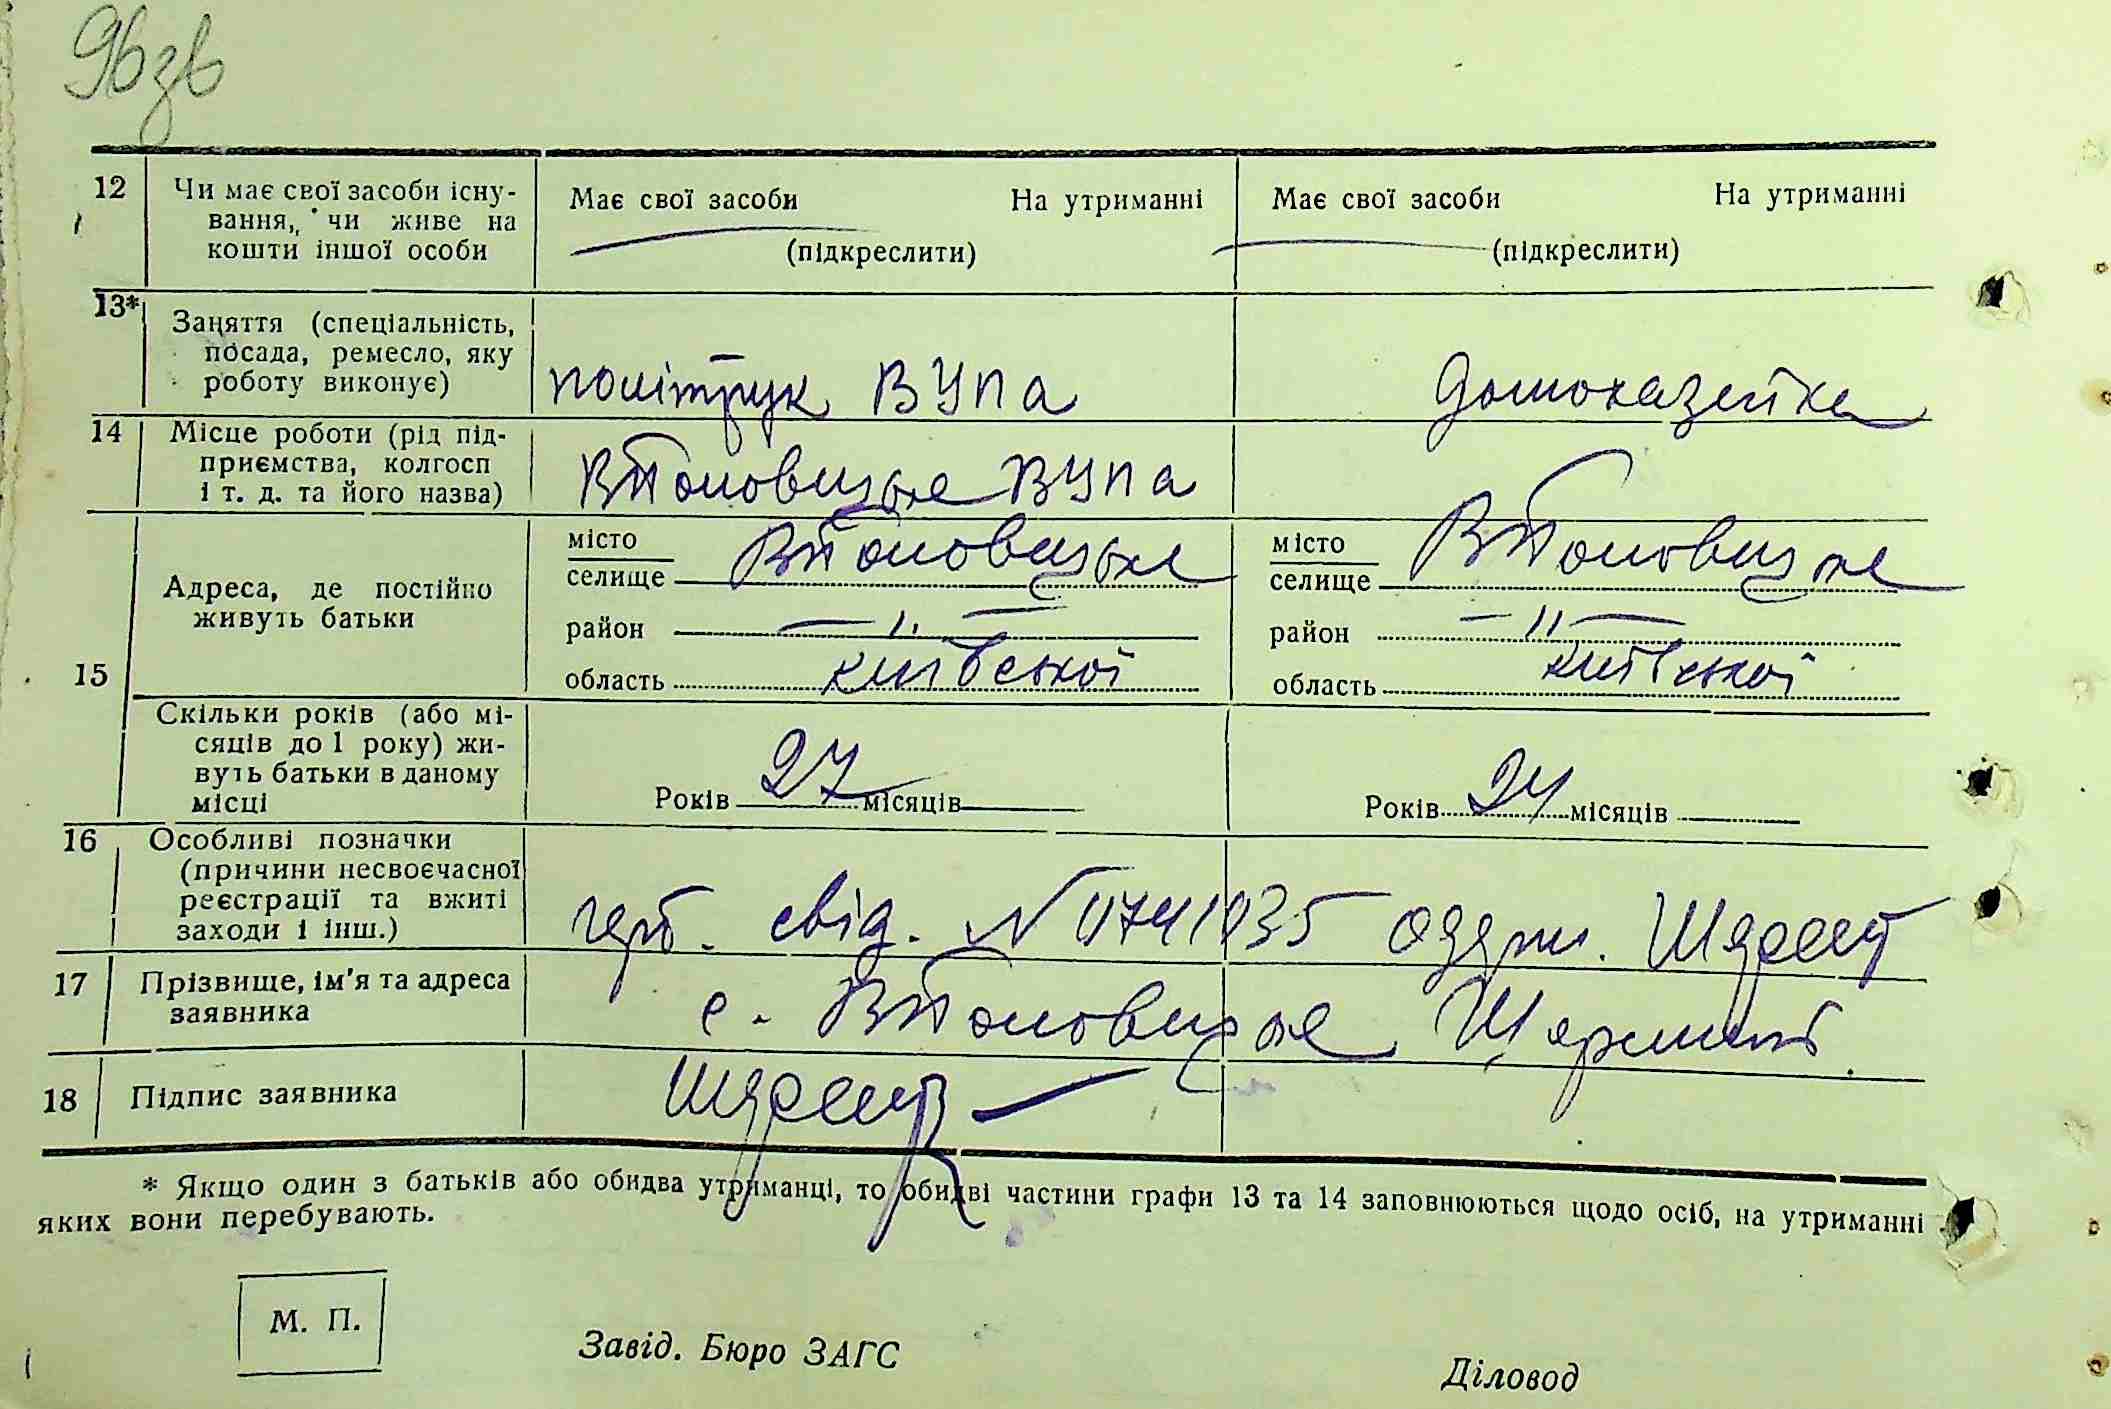 96зв
12 Чи має свої засоби існу-
вання, чи живе на
кошти іншої особи
Має свої засоби На утриманні
(підкреслити)
Має свої засоби На утриманні
(підкреслити)
13* Заняття (спеціальність,
посада, ремесло, яку
роботу виконує)
політрук
домохазейка
14 Місце роботи (рід під-
приємства, колгосп
і т. д. та його назва)
15 Адреса, де постійно
живуть батьки
місто
селище
район — 11 —
область київської
місто
селище
район — 11 —
область київської
Скільки років (або мі-
сяців до 1 року) жи-
вуть батьки в даному
місці
Років 27 місяців
Років 24 місяців
16 Особливі позначки
(причини несвоєчасної
реєстрації та вжиті
заходи і інш.)
герб. свід. № одерж.
17 Прізвище, ім'я та адреса
заявника
с.
18 Підпис заявника
* Якщо один з батьків або обидва утриманці, то обидві частини графи 13 та 14 заповнюються щодо осіб, на утриманні
яких вони перебувають.
М. П.
Завід. Бюро ЗАГС
Діловод